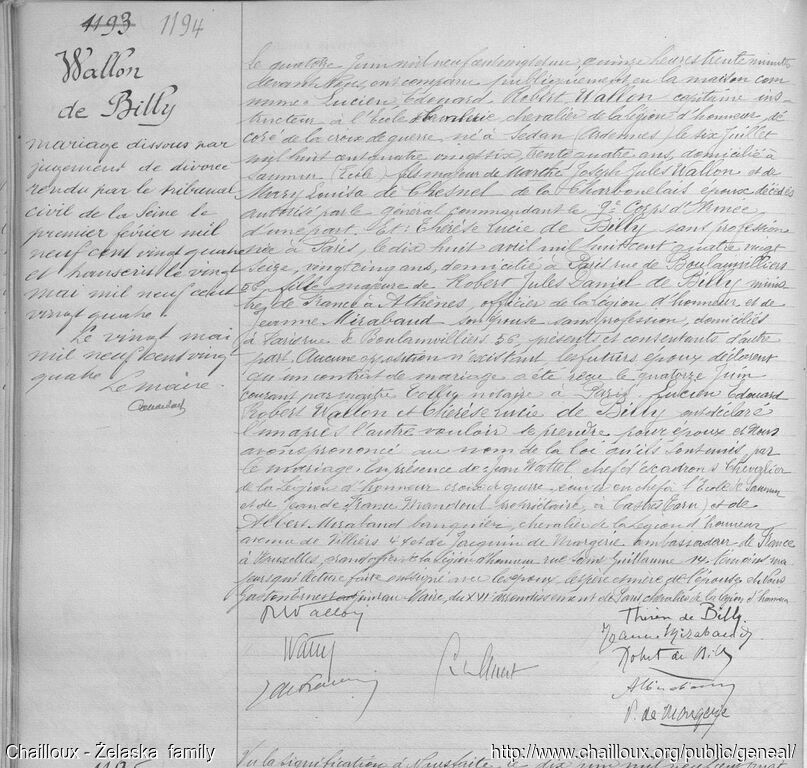 1193 1194
Wallon
de Billy
mariage dissous par
jugement de divorce
rendu par le tribunal
civil de la Seine le
premier février mil
neuf cent vingt quatre
et transcrit le vingt
mai mil neuf cent
vingt quatre.
Le vingt mai
mil neuf cent vingt
quatre
Le maire.
Le quatorze Juin mil neuf cent vingt et un, quinze heures trente minutes
devant Nous, ont comparu publiquement en la maison com
mune: Lucien Edouard Robert Wallon capitaine ins-
tructeur à l'Ecole de cavalerie chevalier de la légion d'honneur, dé
coré de la croix de guerre, né à Sedan (Ardennes) le six Juillet
mil huit cent quatre vingt six, trente quatre ans, domicilié à
Saumur (Ecole) fils majeur de Marthe Joseph Jules Wallon et de
Mary Louisa de Chesnel de la Charbonelais époux décédés
autorisé par le général commandant le 9e Corps d'Armée
d'une part. Et: Thérèse Lucie de Billy sans profession
née à Paris, le dix huit avril mil huit cent quatre vingt
seize, vingt cinq ans, domicilié à Paris rue de Boulainvilliers
56, fille majeure de Robert Jules Daniel de Billy minis
tre de France à Athènes, officier de la légion d'honneur et de
Jeanne Mirabaud son épouse sans profession, domiciliés
à Paris rue de Boulainvilliers 56, présents et consentants d'autre
part. Aucune opposition n'existant les futurs époux déclarent
qu'un contrat de mariage a été reçu le quatorze Juin
courant par maître notaire à Paris. Lucien Edouard
Robert Wallon et Thérèse Lucie de Billy ont déclaré
l'un après l'autre vouloir se prendre pour époux et Nous
avons prononcé au nom de la loi qu'ils sont unis par
le mariage. En présence de: Jean Wattel chef d'escadrons Chevalier
de la Légion d'honneur croix de guerre, écuyer en chef à l'Ecole de Saumur
et de Jean de France propriétaire, à Castres (Tarn) et de
Albert Mirabaud banquier, chevalier de la Légion d'honneur
avenue de Villiers et de Jacquin de Margerie ambassadeur de France
à Bruxelles, grand officier de la légion d'honneur rue Saint Guillaume 14, témoins ma
jeurs qui lecture faite ont signé avec les époux, les père et mère de l'épouse et Nous
Maire, du XVI arrondissement de Paris chevalier de la légion d'honneur
R Wallon
Thérèse de Billy.
Jeanne Mirabaud
Robert de Billy
P. de Margerie
Chailloux - Żelaska family
http://www.chailloux.org/public/geneal/